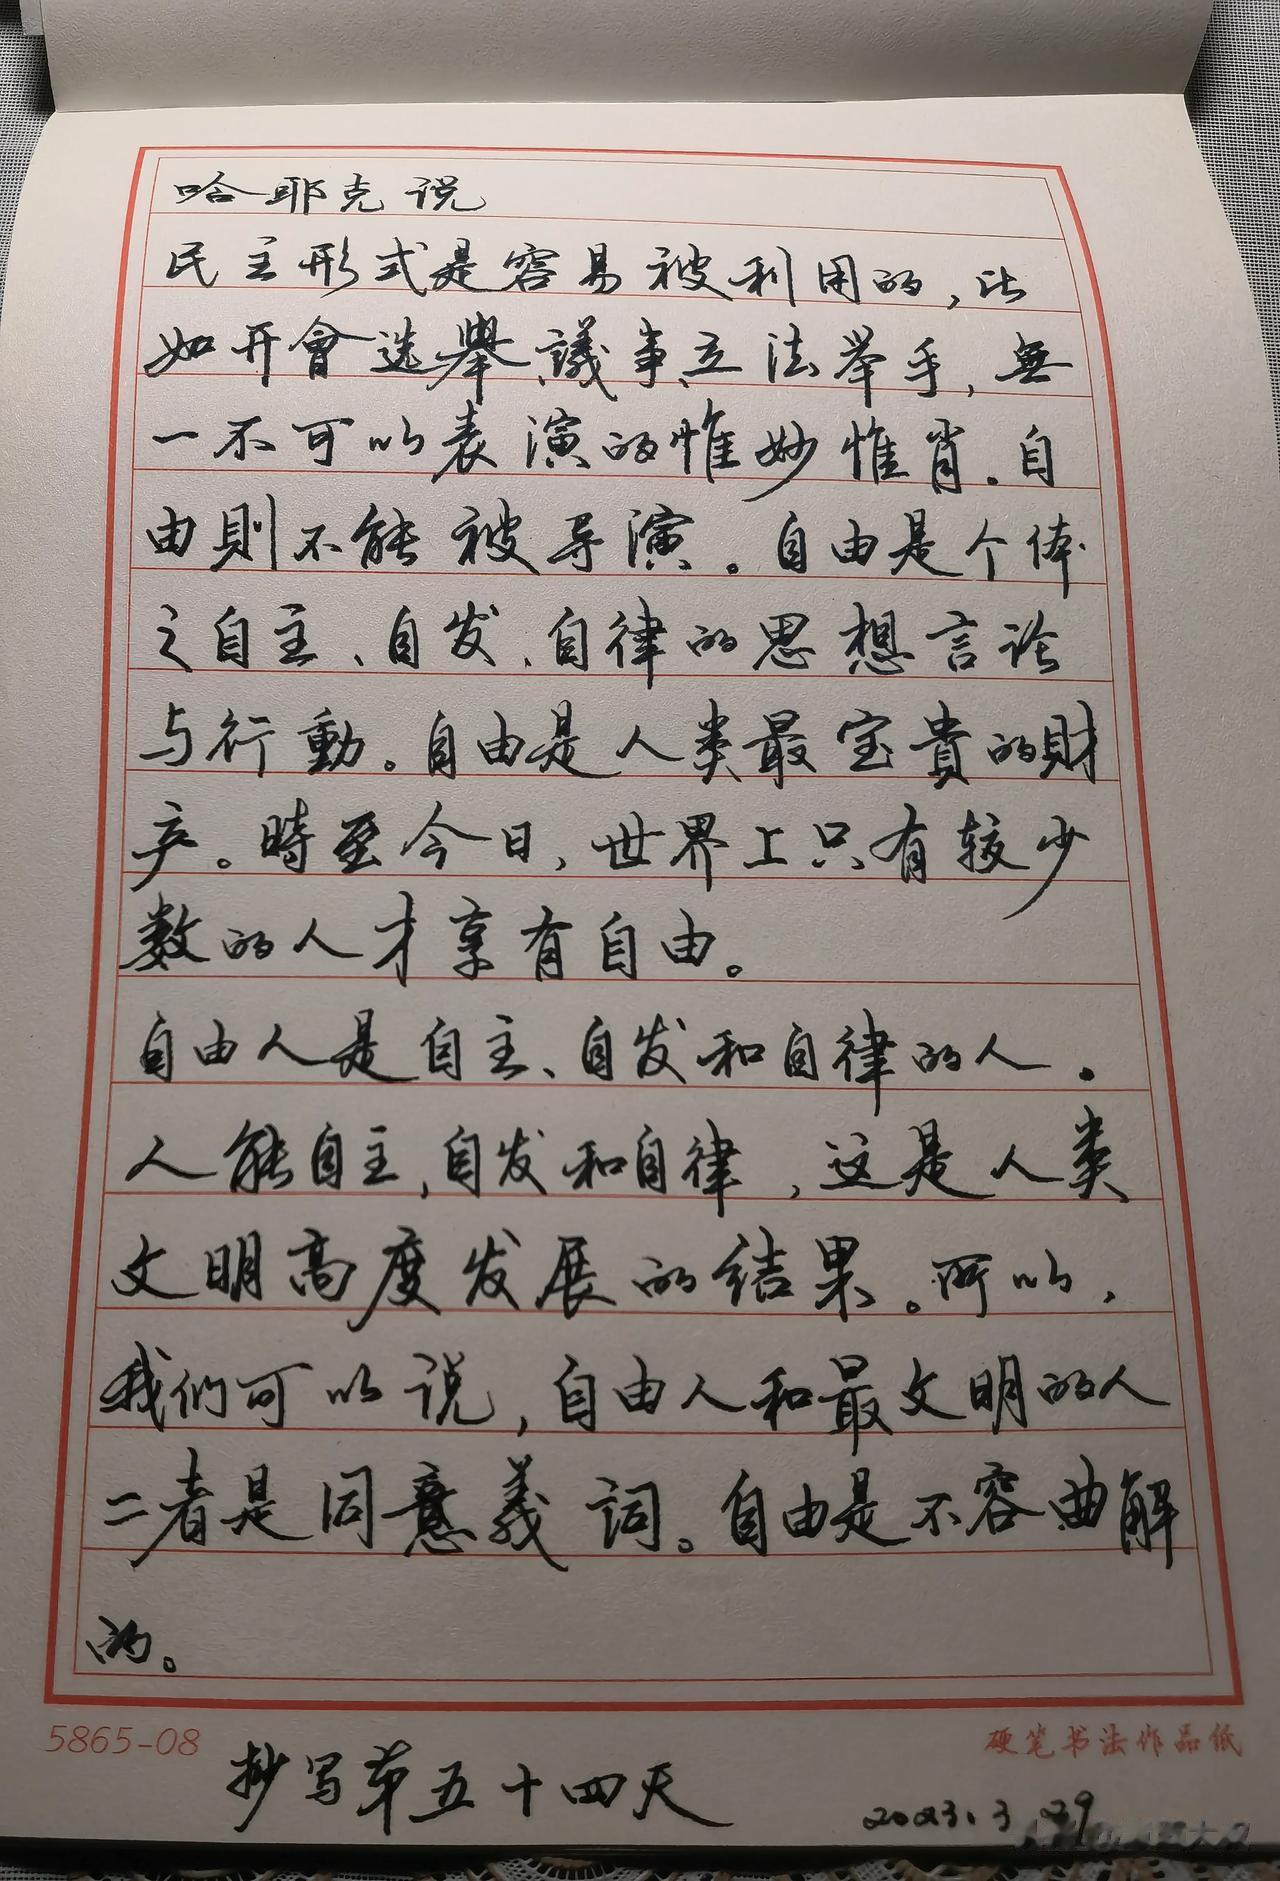 哈耶克说
民主形式是容易被利用的，比
如开會选舉、議事、立法举手，無
一不可以表演的惟妙惟肖。自
由則不能被导演。自由是个体
之自主、自发、自律的思想言论
与行動。自由是人类最宝貴的財
产。時至今日，世界上只有较少
数的人才享有自由。
自由人是自主、自发和自律的人。
人能自主，自发和自律，这是人类
文明高度发展的结果。所以，
我们可以说，自由人和最文明的人
二者是同意義词。自由是不容曲解
的。
5865-08
硬笔书法作品纸
抄写第五十四天
2023.3.29